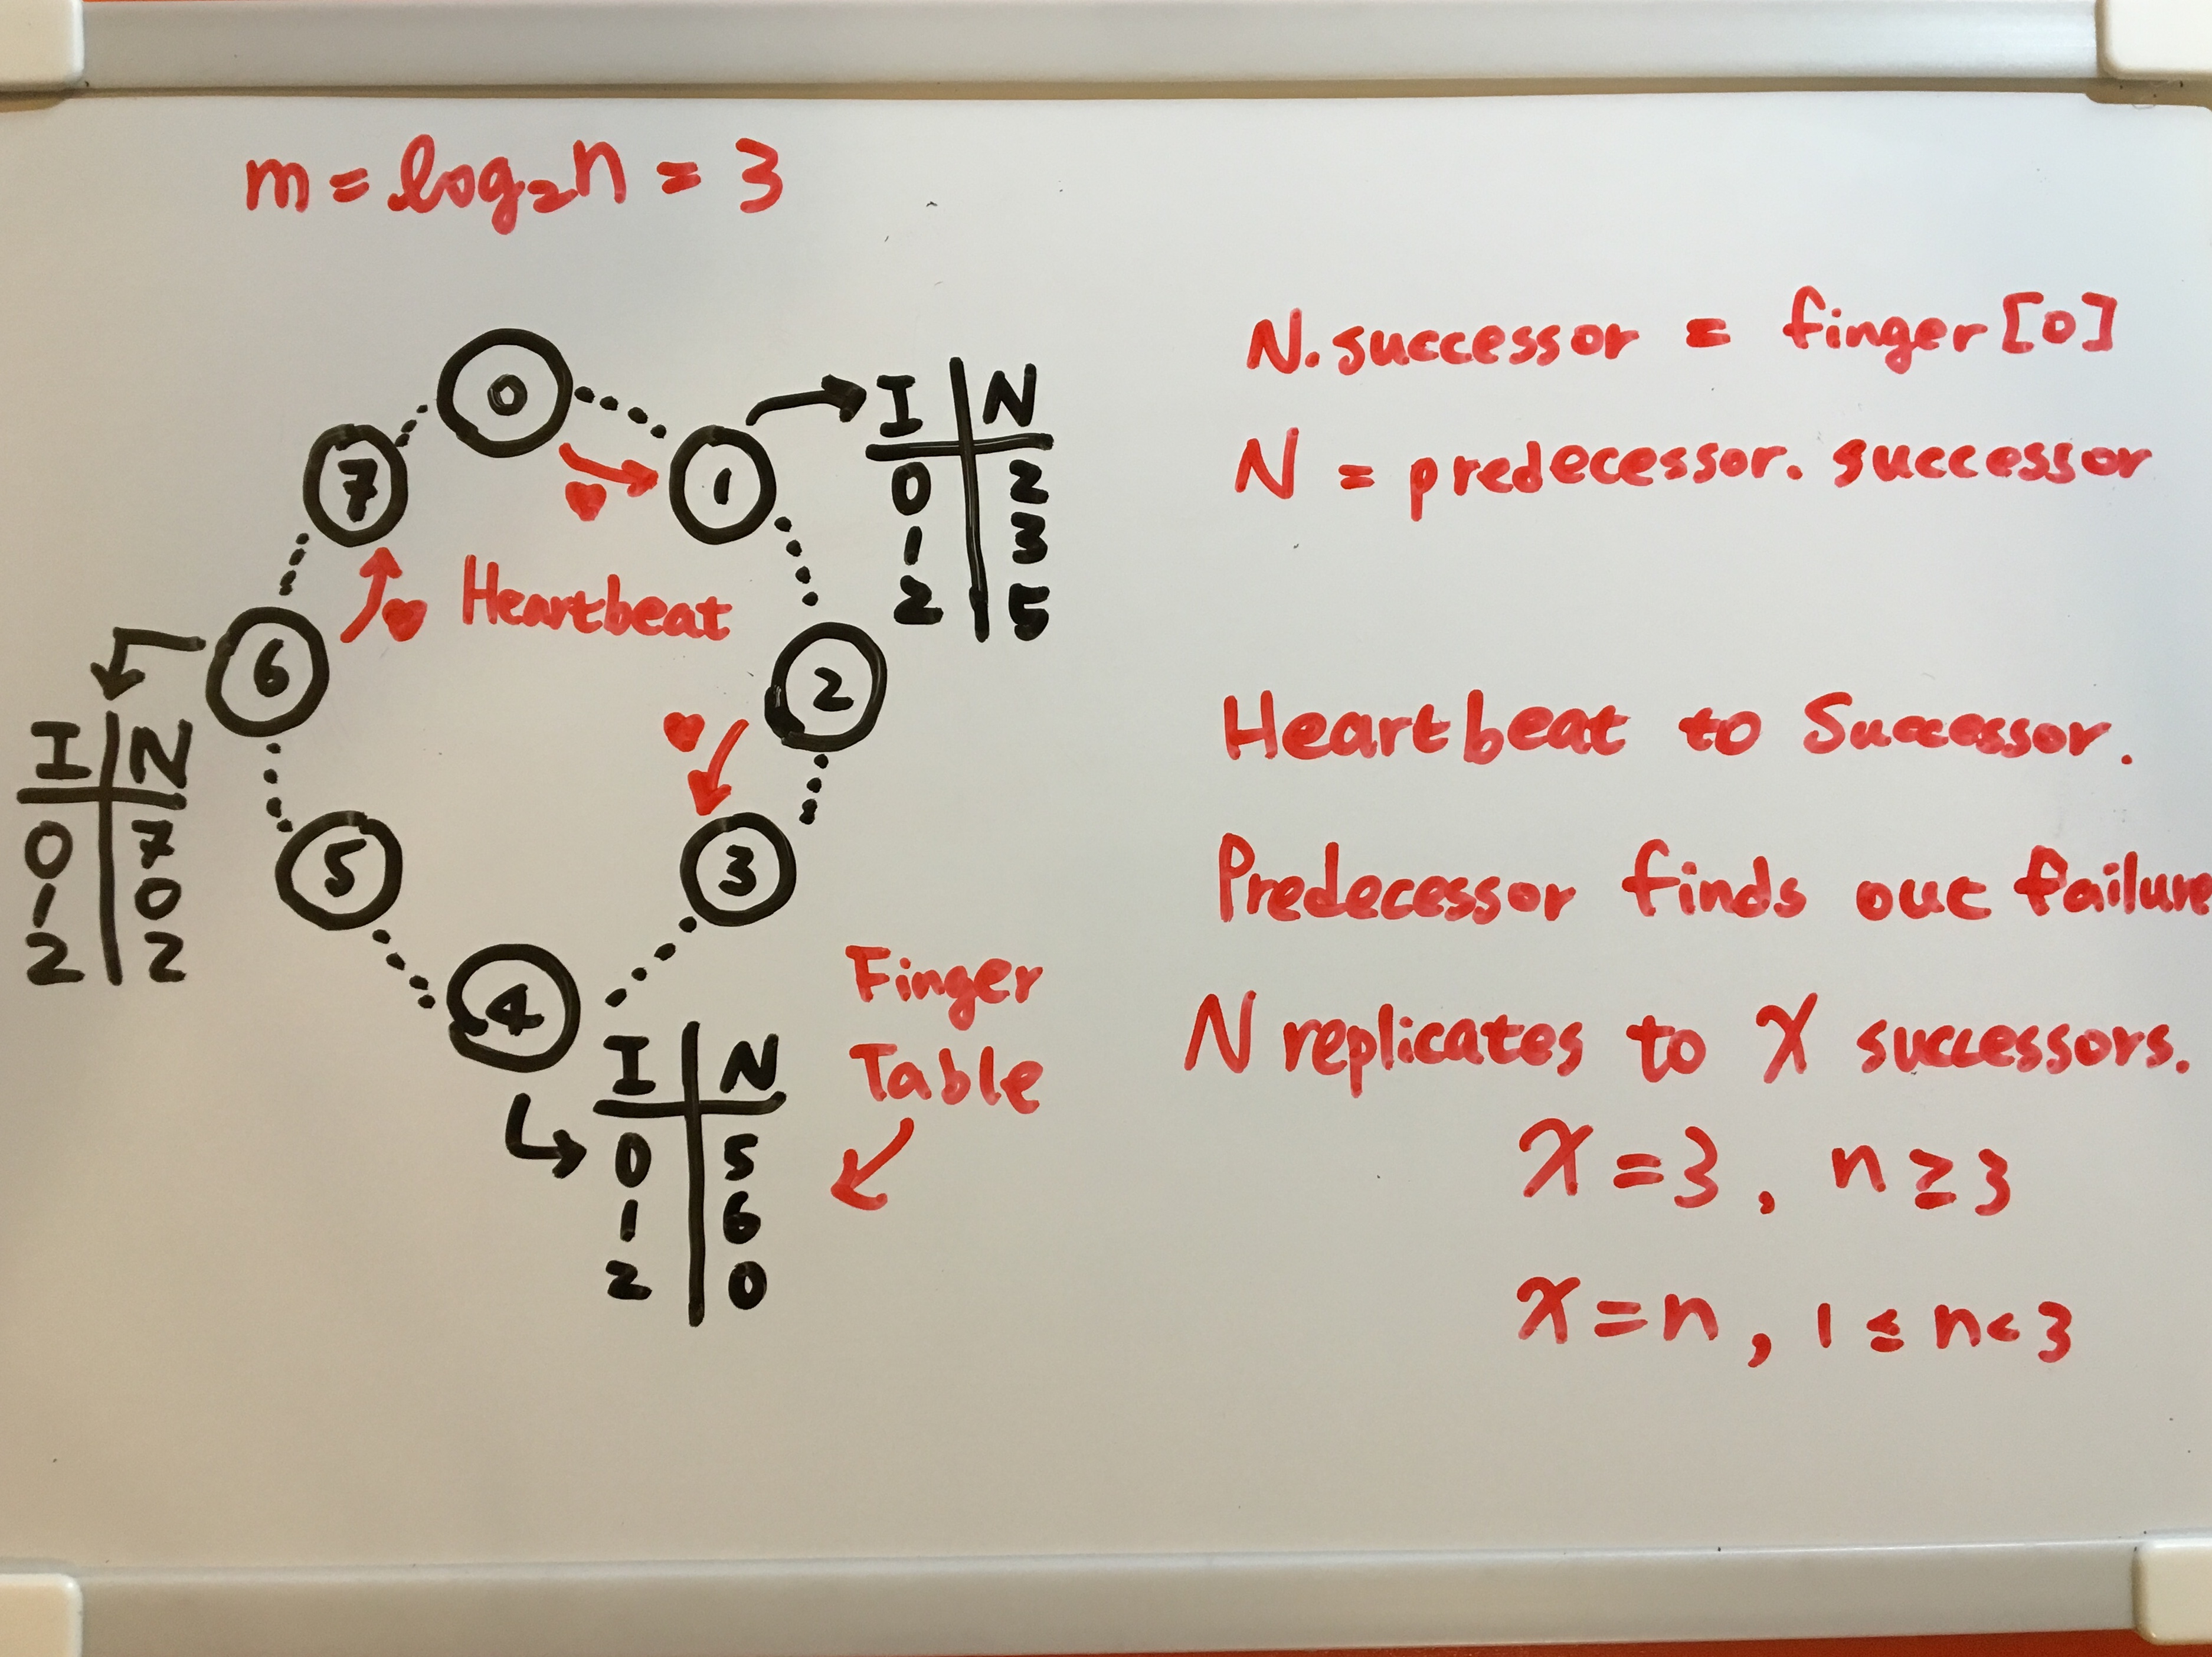 m = log₂n = 3
0
1
2
3
4
5
6
7
Heartbeat
I N
0 2
1 3
2 5
I N
0 7
1 0
2 2
I N
0 5
1 6
2 0
Finger
Table
N.successor = finger[0]
N = predecessor. successor
Heartbeat to Successor.
Predecessor finds out failure
N replicates to X successors.
X = 3, n ≥ 3
X = n, 1 ≤ n < 3